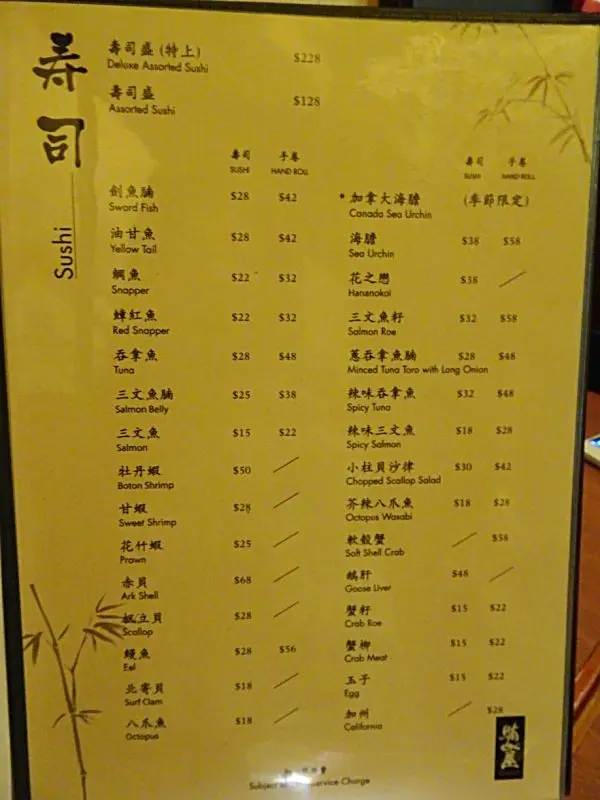 寿司
Sushi
壽司盛 (特上) $228
Deluxe Assorted Sushi
壽司盛 $128
Assorted Sushi
壽司 手卷
SUSHI HAND ROLL
劍魚腩 $28 $42
Sword Fish
油甘魚 $28 $42
Yellow Tail
鯛魚 $22 $32
Snapper
鱆紅魚 $22 $32
Red Snapper
吞拿魚 $28 $48
Tuna
三文魚腩 $25 $38
Salmon Belly
三文魚 $15 $22
Salmon
牡丹蝦 $50 ／
Boton Shrimp
甘蝦 $28 ／
Sweet Shrimp
花竹蝦 $25 ／
Prawn
赤貝 $68 ／
Ark Shell
帆立貝 $28 ／
Scallop
鰻魚 $28 $56
Eel
北寄貝 $18 ／
Surf Clam
八爪魚 $18 ／
Octopus
壽司 手卷
SUSHI HAND ROLL
* 加拿大海膽 (季節限定)
Canada Sea Urchin
海膽 $38 $58
Sea Urchin
花之戀 $38 ／
Hananokoi
三文魚籽 $32 $58
Salmon Roe
蔥吞拿魚腩 $28 $48
Minced Tuna Toro with Long Onion
辣味吞拿魚 $32 $48
Spicy Tuna
辣味三文魚 $18 $28
Spicy Salmon
小柱貝沙律 $30 $42
Chopped Scallop Salad
芥辣八爪魚 $18 $28
Octopus Wasabi
軟殼蟹 ／ $58
Soft Shell Crab
鵝肝 $48 ／
Goose Liver
蟹籽 $15 $22
Crab Roe
蟹柳 $15 $22
Crab Meat
玉子 $15 $22
Egg
加州 ／ $28
California
Subject Service Charge